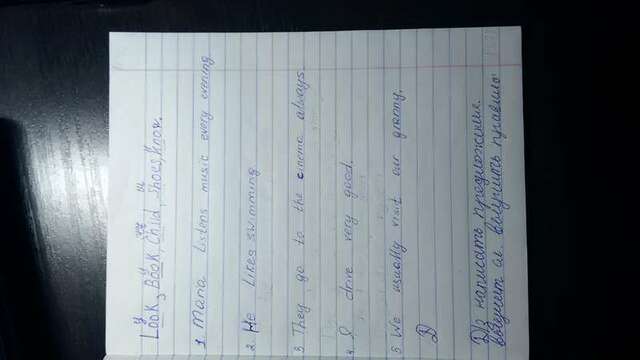 у у ш
Look, Book, Child, Shoes, Know.
1. Maria listens music every evening
2. He likes swimming
3 They go to the cinema always.
4. I drive very good.
5 We usually visit our granny.
D
Дз написать предложения.
выучить правило